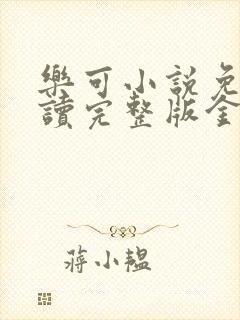 樂可小說免
讀完整版全
蔣小韞